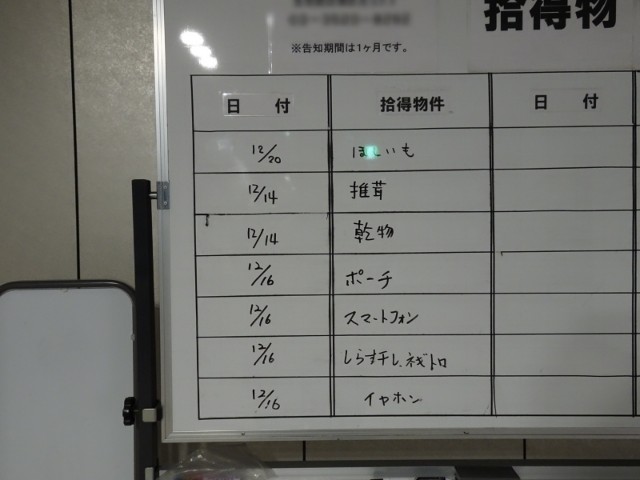 拾得物
※告知期間は1ヶ月です。
日 付 拾得物件 日 付
12/20 ほしいも
12/14 推茸
12/14 乾物
12/16 ポーチ
12/16 スマートフォン
12/16 しらす干し、ネギトロ
12/16 イヤホン